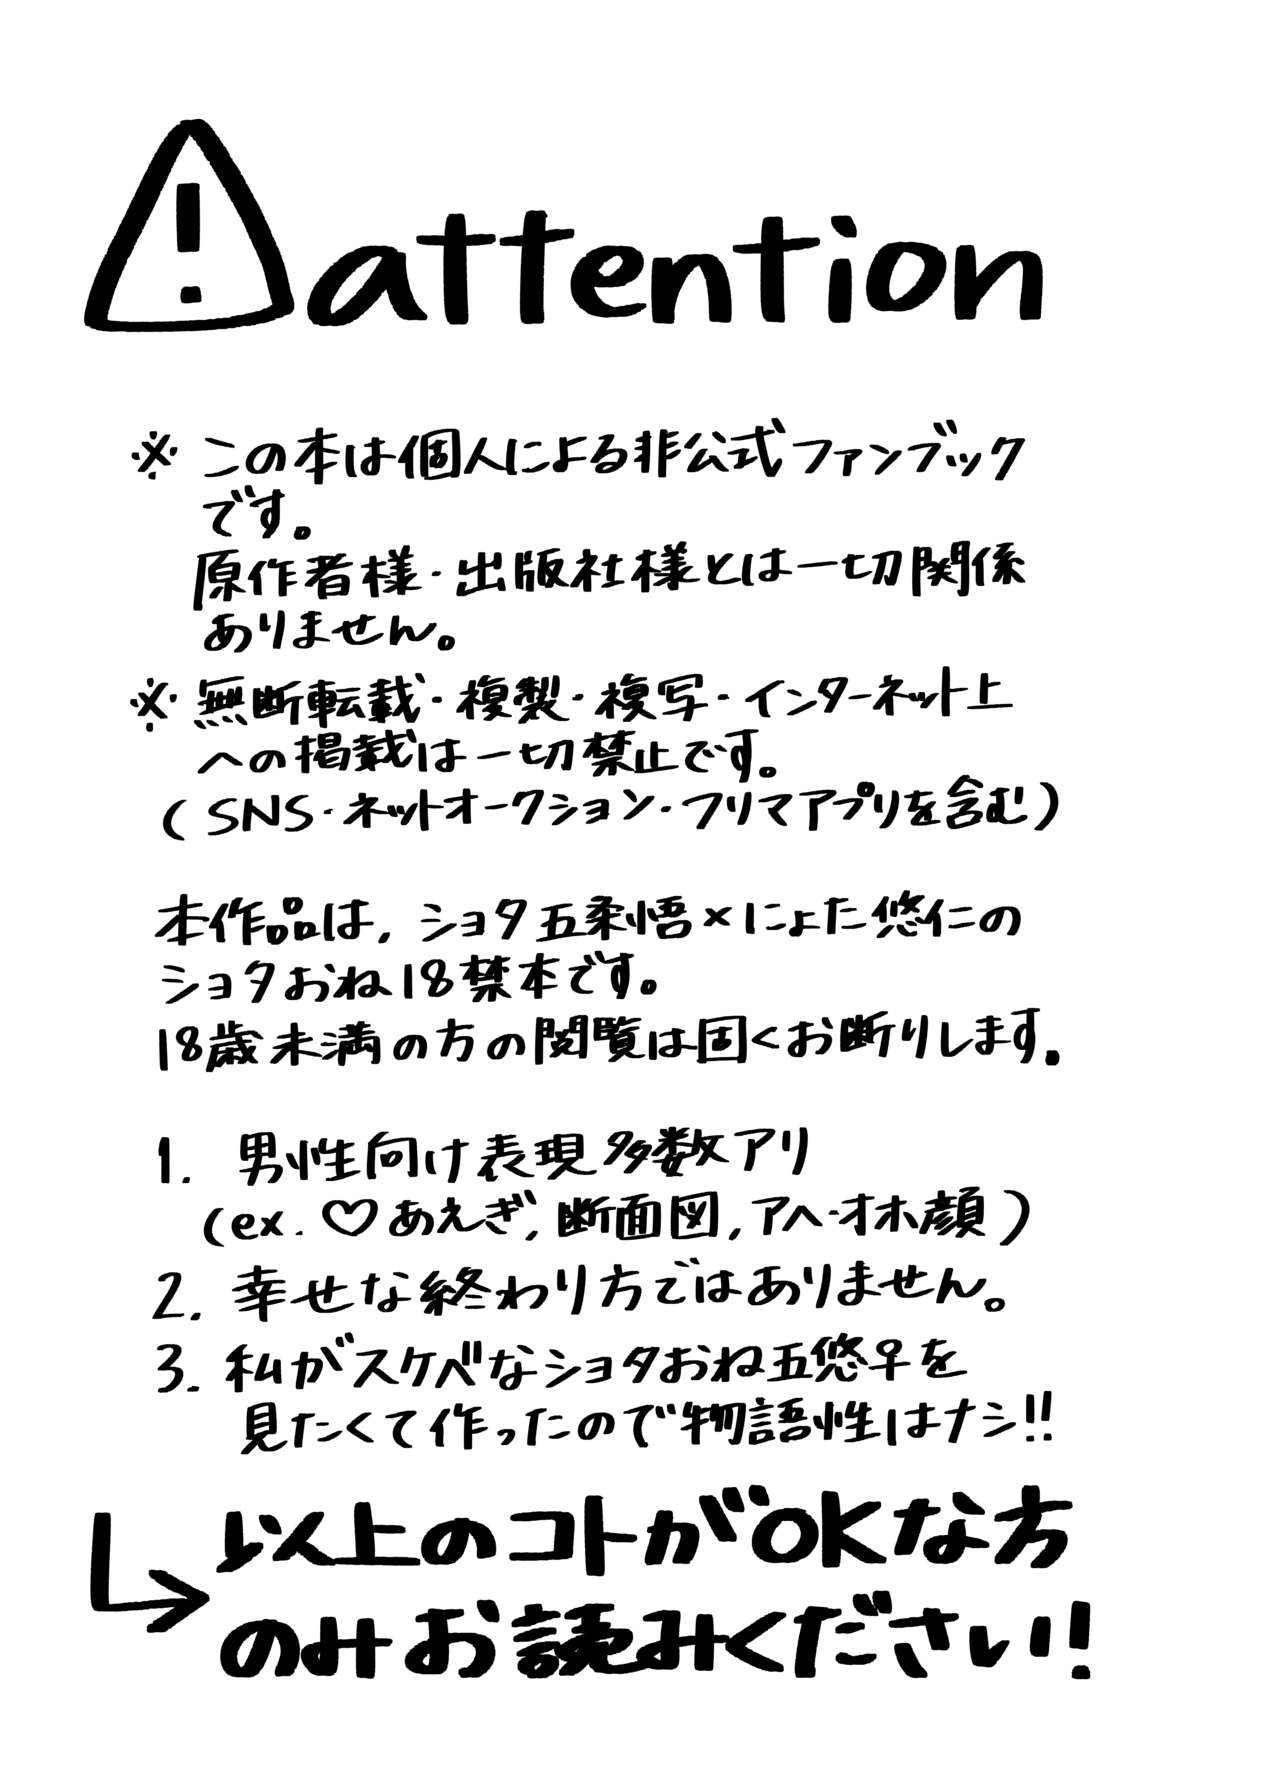 attention
※この本は個人による非公式ファンブック
です。
原作者様・出版社様とは一切関係
ありません。
※無断転載・複製・複写・インターネット上
への掲載は一切禁止です。
(SNS・ネットオークション・フリマアプリを含む)
本作品は,ショタ五条悟×にょた悠仁の
ショタおね18禁本です。
18歳未満の方の閲覧は固くお断りします.
1. 男性向け表現多数アリ
(ex.♡あえぎ,断面図,アヘ・オホ顔)
2. 幸せな終わり方ではありません。
3. 私がスケベなショタおね五悠♀を
見たくて作ったので物語性はナシ!!
以上のコトがOKな方
のみお読みください!